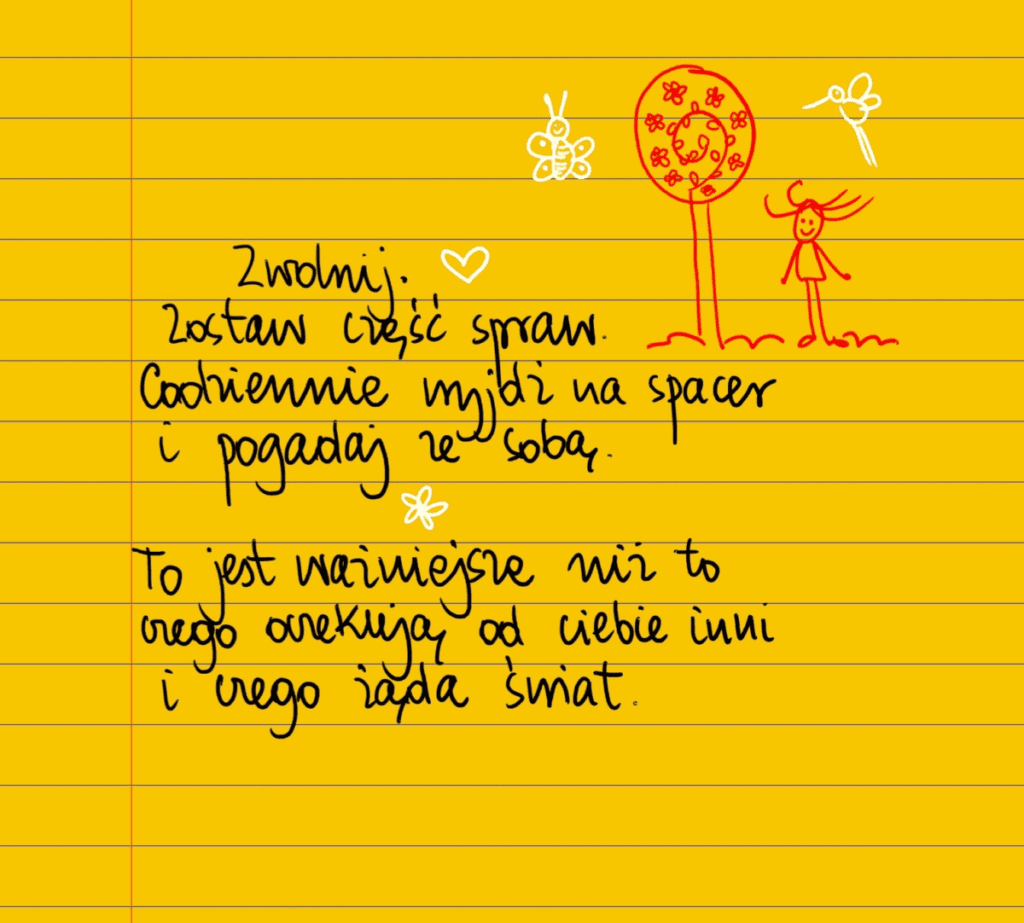 Zwolnij.
Zostaw część spraw.
Codziennie wyjdź na spacer
i pogadaj ze sobą.
To jest ważniejsze niż to
czego oczekują od ciebie inni
i czego żąda świat.